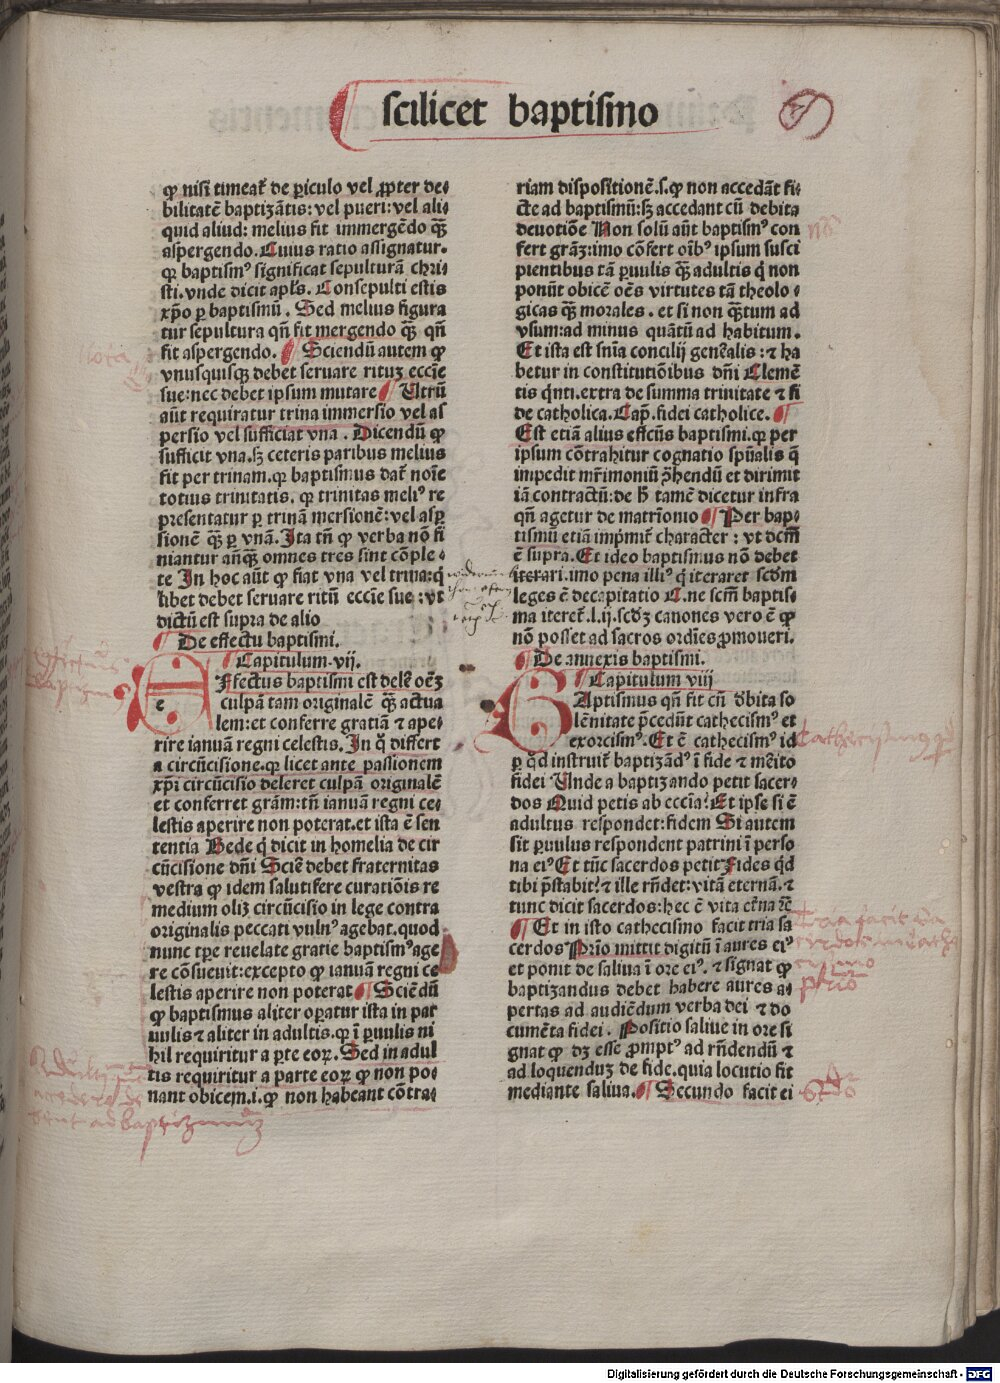 scilicet baptismo
ꝙ nisi timeat᷑ de ꝑiculo vel ꝓpter de⸗
bilitatē baptizātis: vel pueri: vel ali⸗
quid aliud: melius fit immergēdo qȝ̄
aspergendo. Cuius ratio assignatur.
qꝛ baptismꝰ significat sepulturā chri⸗
sti. vnde dicit apl̄s. Consepulti estis
xp̄o ꝑ baptismū. Sed melius figura
tur sepultura qn̄ fit mergendo qȝ̄ qn̄
fit aspergendo. Sciendū autem ꝙ
vnusquisqꝫ debet seruare rituȝ ecc̄ie
sue: nec debet ipsum mutare Utrū
aūt requiratur trina immersio vel as
persio vel sufficiat vna. Dicendū ꝙ
sufficit vna. sȝ ceteris paribus melius
fit per trinam. qꝛ baptismus dat᷑ noīe
totius trinitatis. qꝛ trinitas meliꝰ re
presentatur ꝑ trinā mersionē: vel asꝑ
sionē qȝ̄ ꝑ vnā. Ita tn̄ ꝙ verba nō fi
niantur an̄qȝ̄ omnes tres sint cōple⸗
te In hoc aūt ꝙ fiat vna vel trina: q̄
libet debet seruare ritū ecc̄ie sue: vt
dictū est supra de alio
De effectu baptismi.
Capitulum. vij.
Effectus baptismi est del̄e oēȝ
culpā tam originalē qȝ̄ actua
lem: et conferre gratiā ⁊ ape⸗
rire ianuā regni celestis. In q̊ differt
a circūcisione. qꝛ licet ante passionem
xp̄i circūcisio deleret culpā originalē
et conferret grām: tn̄ ianuā regni ce⸗
lestis aperire non poterat. et ista ē sen
tentia Bede q̇ dicit in homelia de cir
cūcisione dn̄i Scire debet fraternitas
vestra ꝙ idem salutifere curatiōis re
medium oliȝ circūcisio in lege contra
originalis peccati vulnꝰ agebat. quod
nunc tp̄e reuelate gratie baptismꝰ age
re cōsueuit: excepto ꝙ ianuā regni ce
lestis aperire non poterat Sciēdū
ꝙ baptismus aliter oꝑatur ista in par
uulis ⁊ aliter in adultis. qꝛ ī ꝑuulis ni
hil requiritur a ꝑte eoꝝ. Sed in adul
tis requiritur a parte eoꝝ ꝙ non po⸗
nant obicem. i. ꝙ non habeant cōtra⸗
riam dispositionē. s. ꝙ non accedāt fi⸗
cte ad baptismū: sȝ accedant cū debita
deuotiōe Non solū aūt baptismꝰ con
fert grāȝ: imo cōfert oībꝰ ipsum susci
pientibus tā ꝑuulis qȝ̄ adultis q̇ non
ponūt obicē oēs virtutes tā theolo⸗
gicas qȝ̄ morales. et si non qȝ̄tum ad
vsum: ad minus quātū ad habitum.
Et ista est sn̄ia concilij gen̄alis: ⁊ ha
betur in constitutiōibus dn̄i Clemē
tis q̇nti. extra de summa trinitate ⁊ fi
de catholica. Cap̄. fidei catholice.
Est etiā alius effcūs baptismi. qꝛ per
ipsum cōtrahitur cognatio spūalis q̄
impedit mr̄imoniū ꝯ̄hendū et dirimit
iā contractū: de h̄ tamē dicetur infra
qn̄ agetur de matr̄ionio Per bap⸗
tismū etiā imprimit᷑ character: vt dcm̄
ē supra. Et ideo baptismus nō debet
iterari. imo pena illiꝰ q̇ iteraret scd̄m
leges ē decapitatio C. ne scm̄ baptis⸗
ma iteret᷑. l. ij. scd̄ȝ canones vero ē ꝙ
nō posset ad sacros ordīes ꝓmoueri.
De annexis baptismi.
Capitulum viij
Baptismus qn̄ fit cū d̄bita so
lēnitate p̄cedūt cathecismꝰ et
exorcismꝰ. Et ē cathecismꝰ id
ꝑ qd̄ instruit᷑ baptizādꝰ ī fide ⁊ me̊ito
fidei Unde a baptizando petit sacer⸗
dos Quid petis ab ecc̄ia? Et ipse si ē
adultus respondet: fidem Si autem
sit ꝑuulus respondent patrini ī perso
na eiꝰ Et tūc sacerdos petit Fides qd̄
tibi p̄stabit? ⁊ ille rn̄det: vitā eternā. ⁊
tunc dicit sacerdos: hec ē vita et̄na ⁊c̄
Et in isto cathecismo facit tria sa
cerdos Prīo mittit digitū ī aures eiꝰ
et ponit de saliua ī ore eiꝰ. ⁊ signat ꝙ
baptizandus debet habere aures a⸗
pertas ad audiēdum verba dei ⁊ do
cumēta fidei. Positio saliue in ore si
gnat ꝙ dȝ esse ꝓmptꝰ ad rn̄dendū ⁊
ad loquenduȝ de fide. quia locutio fit
mediante saliua. Secundo facit ei
nota
Tria facit sa
cerdos in cathe
cismo
primo
Digitalisierung gefördert durch die Deutsche Forschungsgemeinschaft - DFG